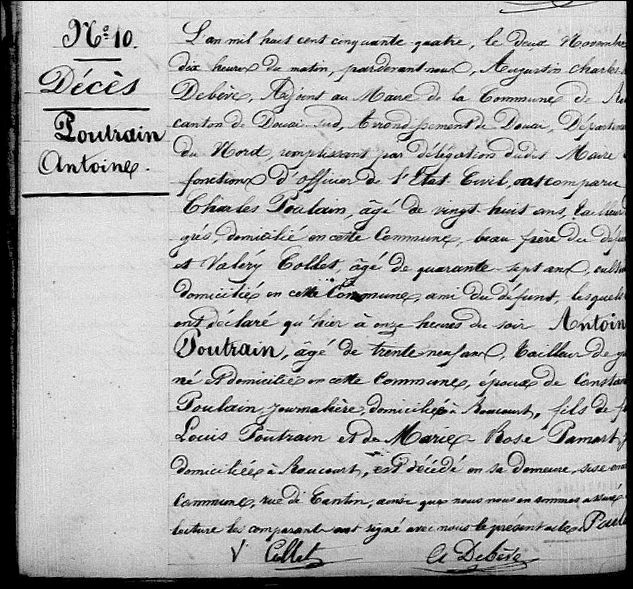 N.º 10.
Décès
Poutrain
Antoine.
L'an mil huit cent cinquante quatre, le deux Novembre
dix heures du matin, pardevant nous, Augustin Charles
Debève, Adjoint au Maire de la Commune de
canton de Douai Sud, Arrondissement de Douai, Départeme
du Nord, remplissant par délégation dudit Maire
fonctions d'officier de l'État Civil, ont comparu
Charles Poulain, âgé de vingt huit ans, tailleur
grés, domicilié en cette Commune, beau frère du défun
et Valéry Collet, âgé de quarante-sept ans, cultiv
domicilié en cette Commune, ami du défunt, lesquels
ont déclaré qu'hier à onze heures du soir Antoin
Poutrain, âgé de trente neuf ans, tailleur de g
né et domicilié en cette Commune, époux de Constan
Poulain, journalière, domiciliée à Roucourt, fils de f
Louis Poutrain et de Marie-Rose Pamart,
domiciliée à Roucourt, est décédé en sa demeure, sise en
commune, rue de Cantin, ainsi que nous nous en sommes assuré
lecture les comparants ont signé avec nous le présent acte. Poula
V Collet A Debève